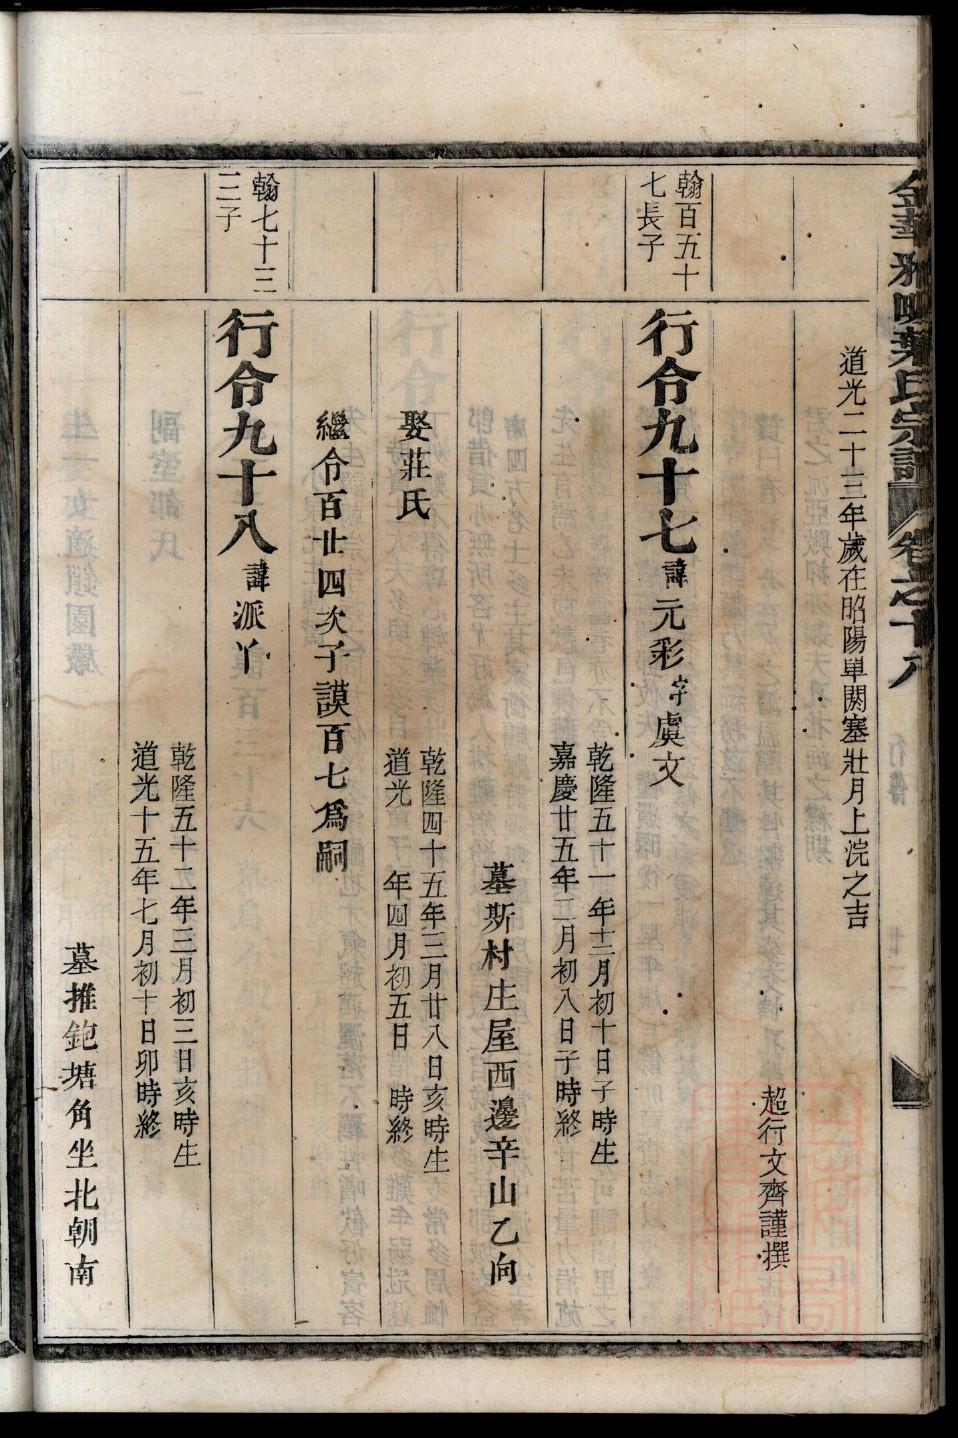 金華雅畈葉氏宗譜 卷之十八 行傳
道光二十三年歲在昭陽單閼塞壯月上浣之吉
超行文齊謹撰
翰百五十
七長子
行令九十七諱元彩字虞文
乾隆五十一年十二月初十日子時生
嘉慶廿五年二月初八日子時終
墓斯村庄屋西邊辛山乙向
娶莊氏
乾隆四十五年三月廿八日亥時生
道光 年四月初五日 時終
繼令百廿四次子謨百七爲嗣
翰七十三
三子
行令九十八諱派丫
乾隆五十二年三月初三日亥時生
道光十五年七月初十日卯時終
墓推鉋塘角坐北朝南